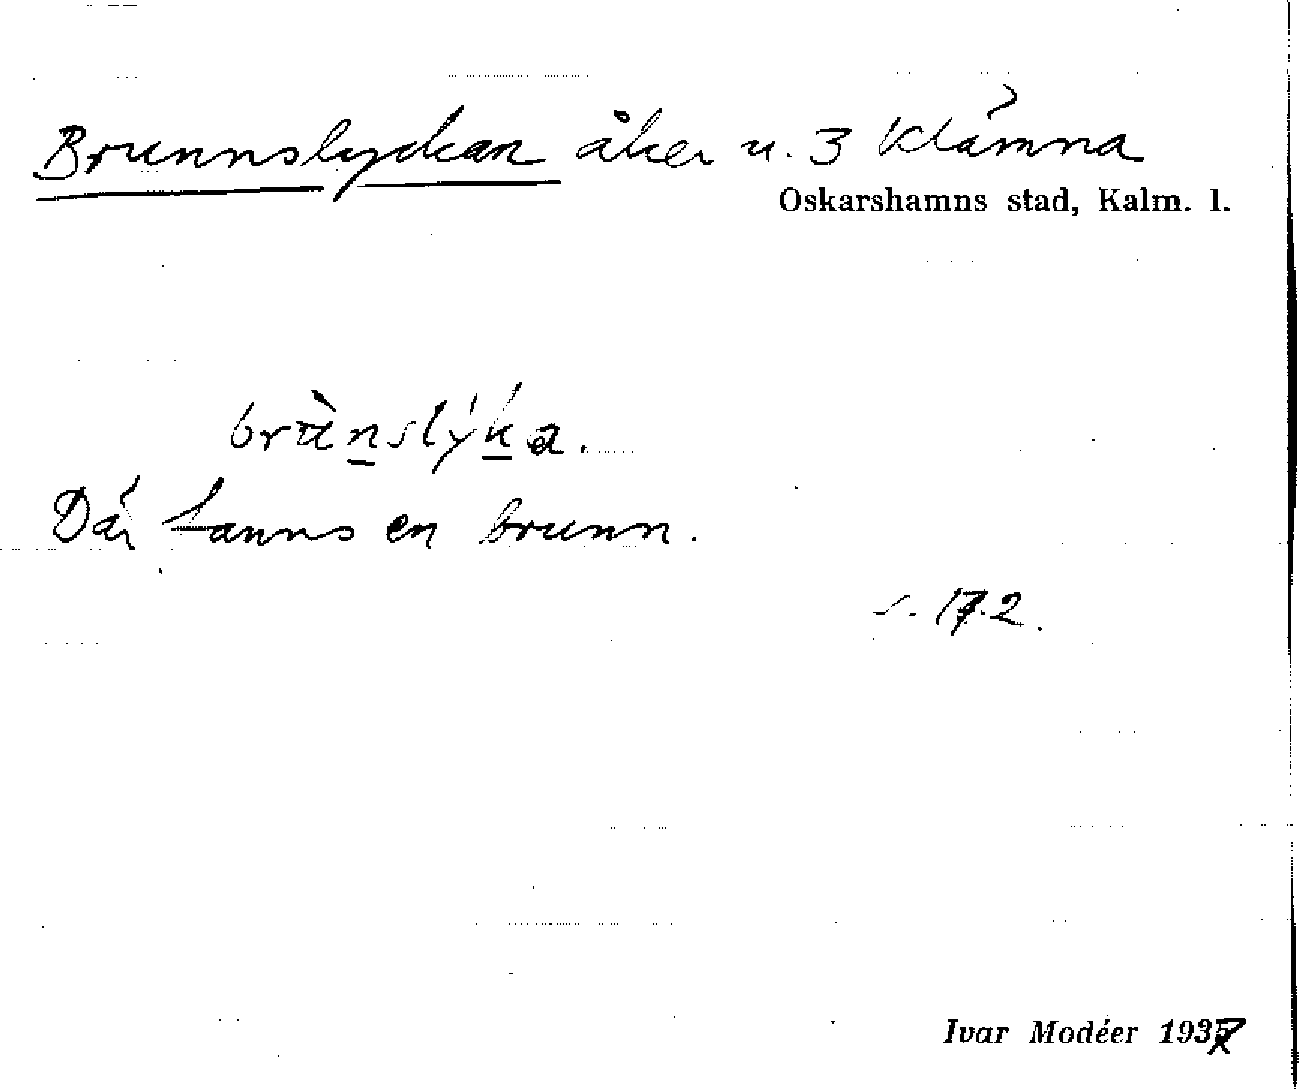 Brunnslyckan åker u. 3 Klämna
Oskarshamns stad, Kalm. l.
brùnslýka.
Där fanns en brunn.
s. 172.
Ivar Modéer 1937